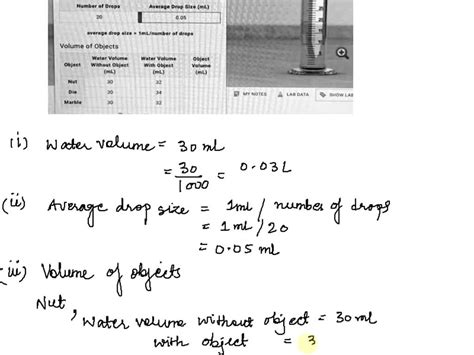 Number of Drops Average Drop Size (mL)
20 0.05
average drop size = 1mL/number of drops
Volume of Objects
Object Water Volume Without Object (mL) Water Volume With Object (mL) Object Volume (mL)
Nut 30 32
Die 30 34
Marble 30 32
MY NOTES LAB DATA SHOW LAB
(i) Water volume = 30 ml
= 30/1000 = 0.03L
(ii) Average drop size = 1ml / number of drops
= 1 ml / 20
= 0.05 ml
(iii) Volume of objects
Nut,
Water volume without object = 30 ml
with object = 3